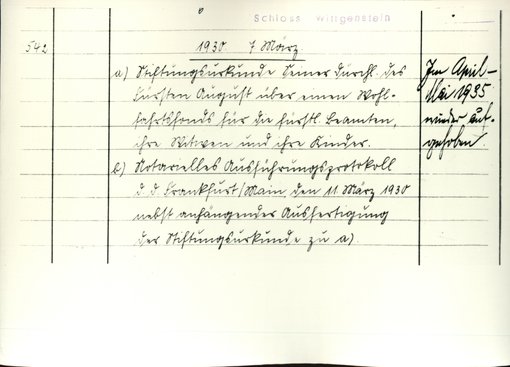 Schloss Wittgenstein
542
1930. 7 März
a) Stiftungsurkunde Seiner Durchl. des
Fürsten August über einen Wohl-
fahrtsfonds für die fürstl. Beamten,
ihre Witwen und ihre Kinder.
b) Notarielles Ausführungsprotokoll
d. d. Frankfurt/Main, den 11. März 1930
nebst anhängender Ausfertigung
der Stiftungsurkunde zu a).
Im April-
Mai 1935
wieder auf-
gehoben